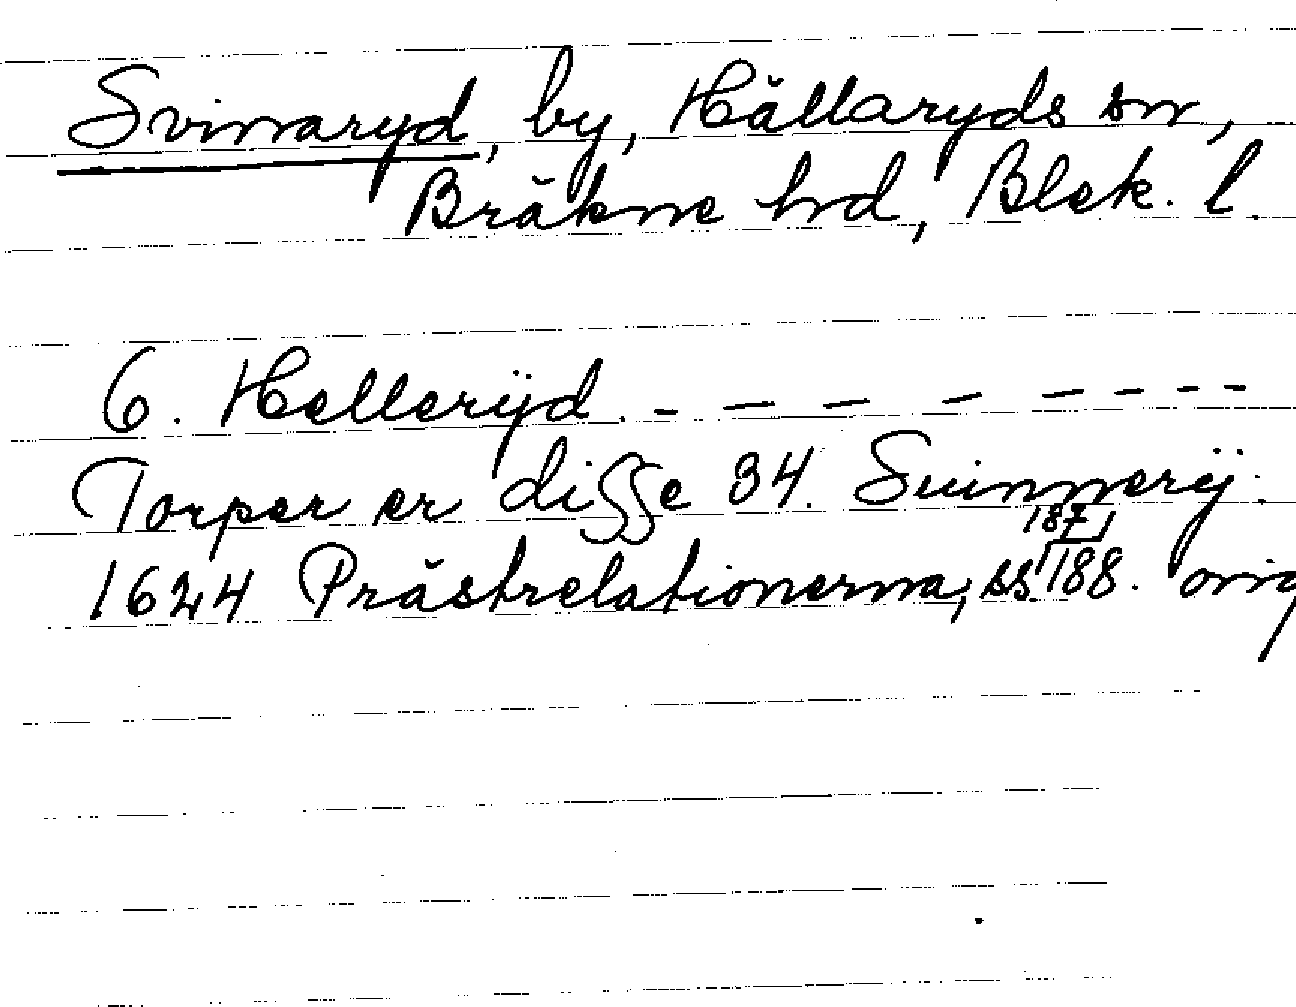 Svinaryd, by, Hällaryds sn,
Bräkne hd, Blek. l.
6. Hellerÿd. - - - - - - - -
Torper er disse 34. Suinnerÿ:
187,
1624 Prästrelationerna, ss. 188. orig